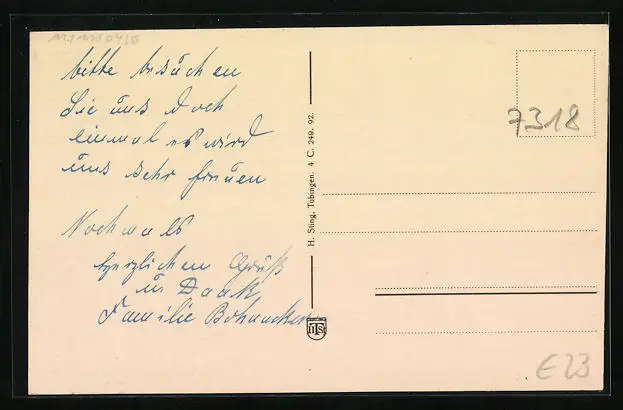 bitte besuchen
Sie uns doch
einmal es wird
uns sehr freuen
Nochmals
herzlichen Gruß
u. Dank
Familie
H. Sting, Tübingen. 4 C. 249. 92.
7318
E23